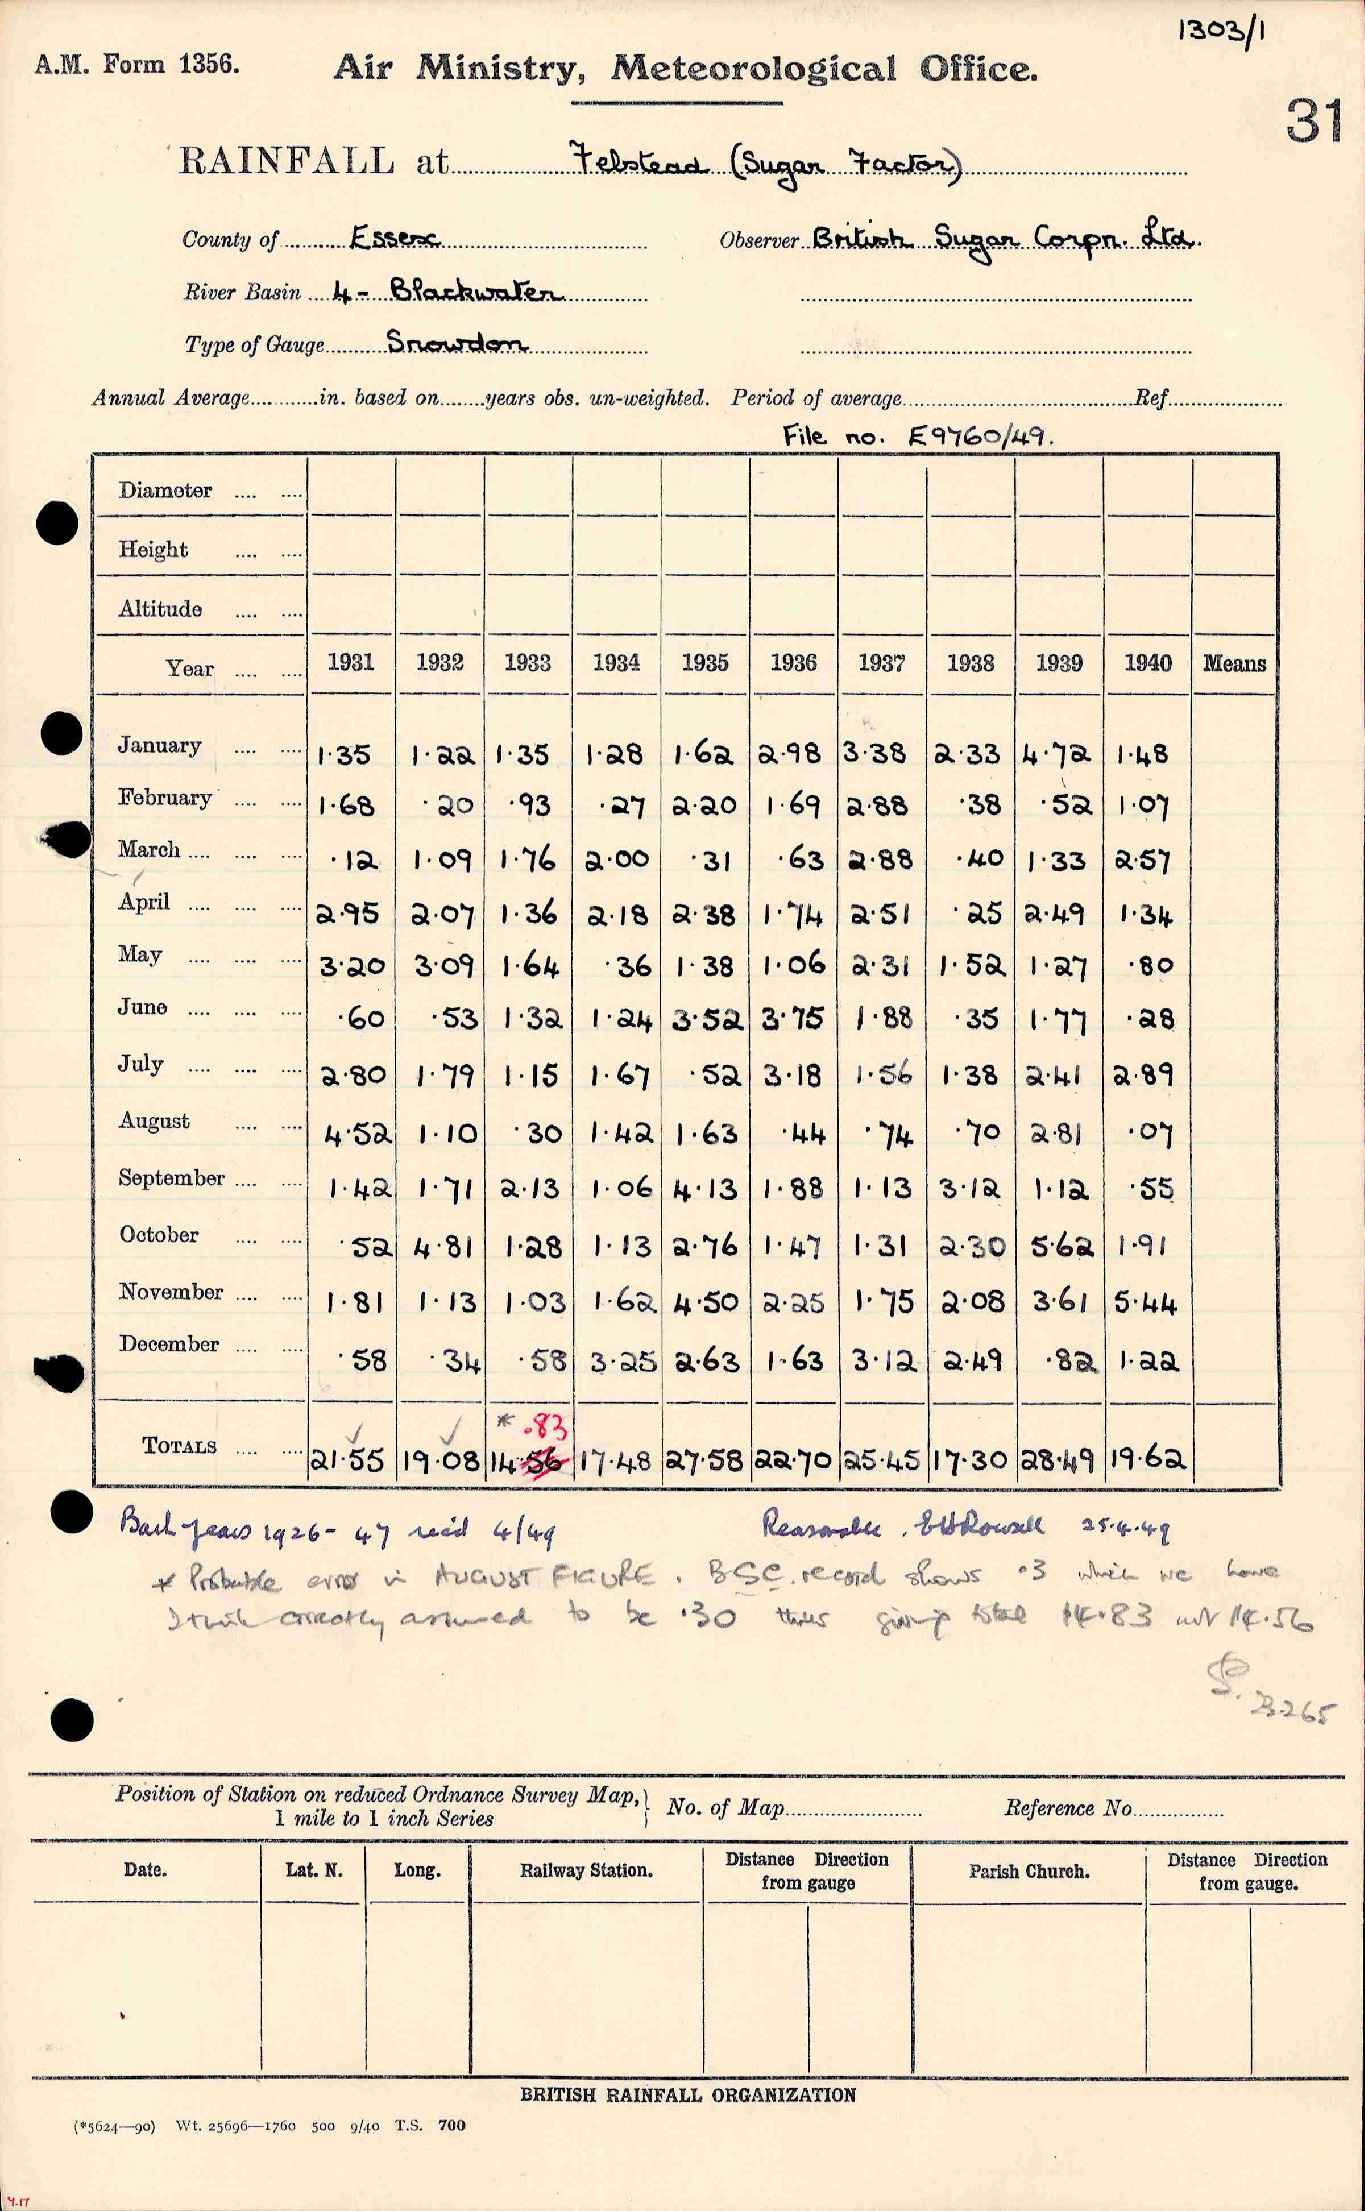 1303/1
A.M. Form 1356. Air Ministry, Meteorological Office.
31
RAINFALL at Felstead (Sugar Factor)
County of Essex Observer British Sugar Corpn. Ltd.
River Basin 4 - Blackwater
Type of Gauge Snowdon
Annual Average in. based on years obs. un-weighted. Period of average Ref
File no. E9760/49.
Diameter
Height
Altitude
Year 1931 1932 1933 1934 1935 1936 1937 1938 1939 1940 Means
January 1·35 1·22 1·35 1·28 1·62 2·98 3·38 2·33 4·72 1·48
February 1·68 ·20 ·93 ·27 2·20 1·69 2·88 ·38 ·52 1·07
March ·12 1·09 1·76 2·00 ·31 ·63 2·88 ·40 1·33 2·57
April 2·95 2·07 1·36 2·18 2·38 1·74 2·51 ·25 2·49 1·34
May 3·20 3·09 1·64 ·36 1·38 1·06 2·31 1·52 1·27 ·80
June ·60 ·53 1·32 1·24 3·52 3·75 1·88 ·35 1·77 ·28
July 2·80 1·79 1·15 1·67 ·52 3·18 1·56 1·38 2·41 2·89
August 4·52 1·10 ·30 1·42 1·63 ·44 ·74 ·70 2·81 ·07
September 1·42 1·71 2·13 1·06 4·13 1·88 1·13 3·12 1·12 ·55
October ·52 4·81 1·28 1·13 2·76 1·47 1·31 2·30 5·62 1·91
November 1·81 1·13 1·03 1·62 4·50 2·25 1·75 2·08 3·61 5·44
December ·58 ·34 ·58 3·25 2·63 1·63 3·12 2·49 ·82 1·22
* .83
TOTALS 21·55 19·08 14·56 17·48 27·58 22·70 25·45 17·30 28·49 19·62
Back years 1926-47 rec'd 4/49 Reasonable. EHRowsell 25·4·49
* Probable error in AUGUST FIGURE. BSC. record shows ·3 which we have
I think correctly assumed to be ·30 thus giving total 14·83 not 14·56
Position of Station on reduced Ordnance Survey Map, No. of Map Reference No
1 mile to 1 inch Series
Date. Lat. N. Long. Railway Station. Distance Direction from gauge Parish Church. Distance Direction from gauge.
BRITISH RAINFALL ORGANIZATION
(*5624—90) Wt. 25696—1760 500 9/40 T.S. 700